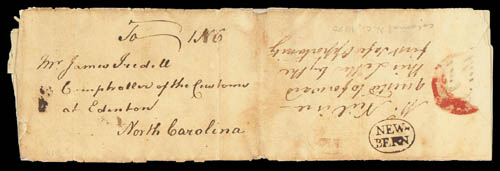 To 1N6
Mr James Iredell
Comptroller of the Customs
at Edenton
North Carolina
Mr. is re-
quested to forward
this Letter by the
first safe Opportunity
NEW-
BERN